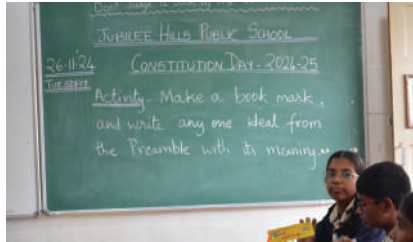 JUBILEE HILLS PUBLIC SCHOOL
26.11'24
TUESDAY
CONSTITUTION DAY - 2024-25
Activity - Make a book mark,
and write any one ideal from
the Preamble with its meaning...